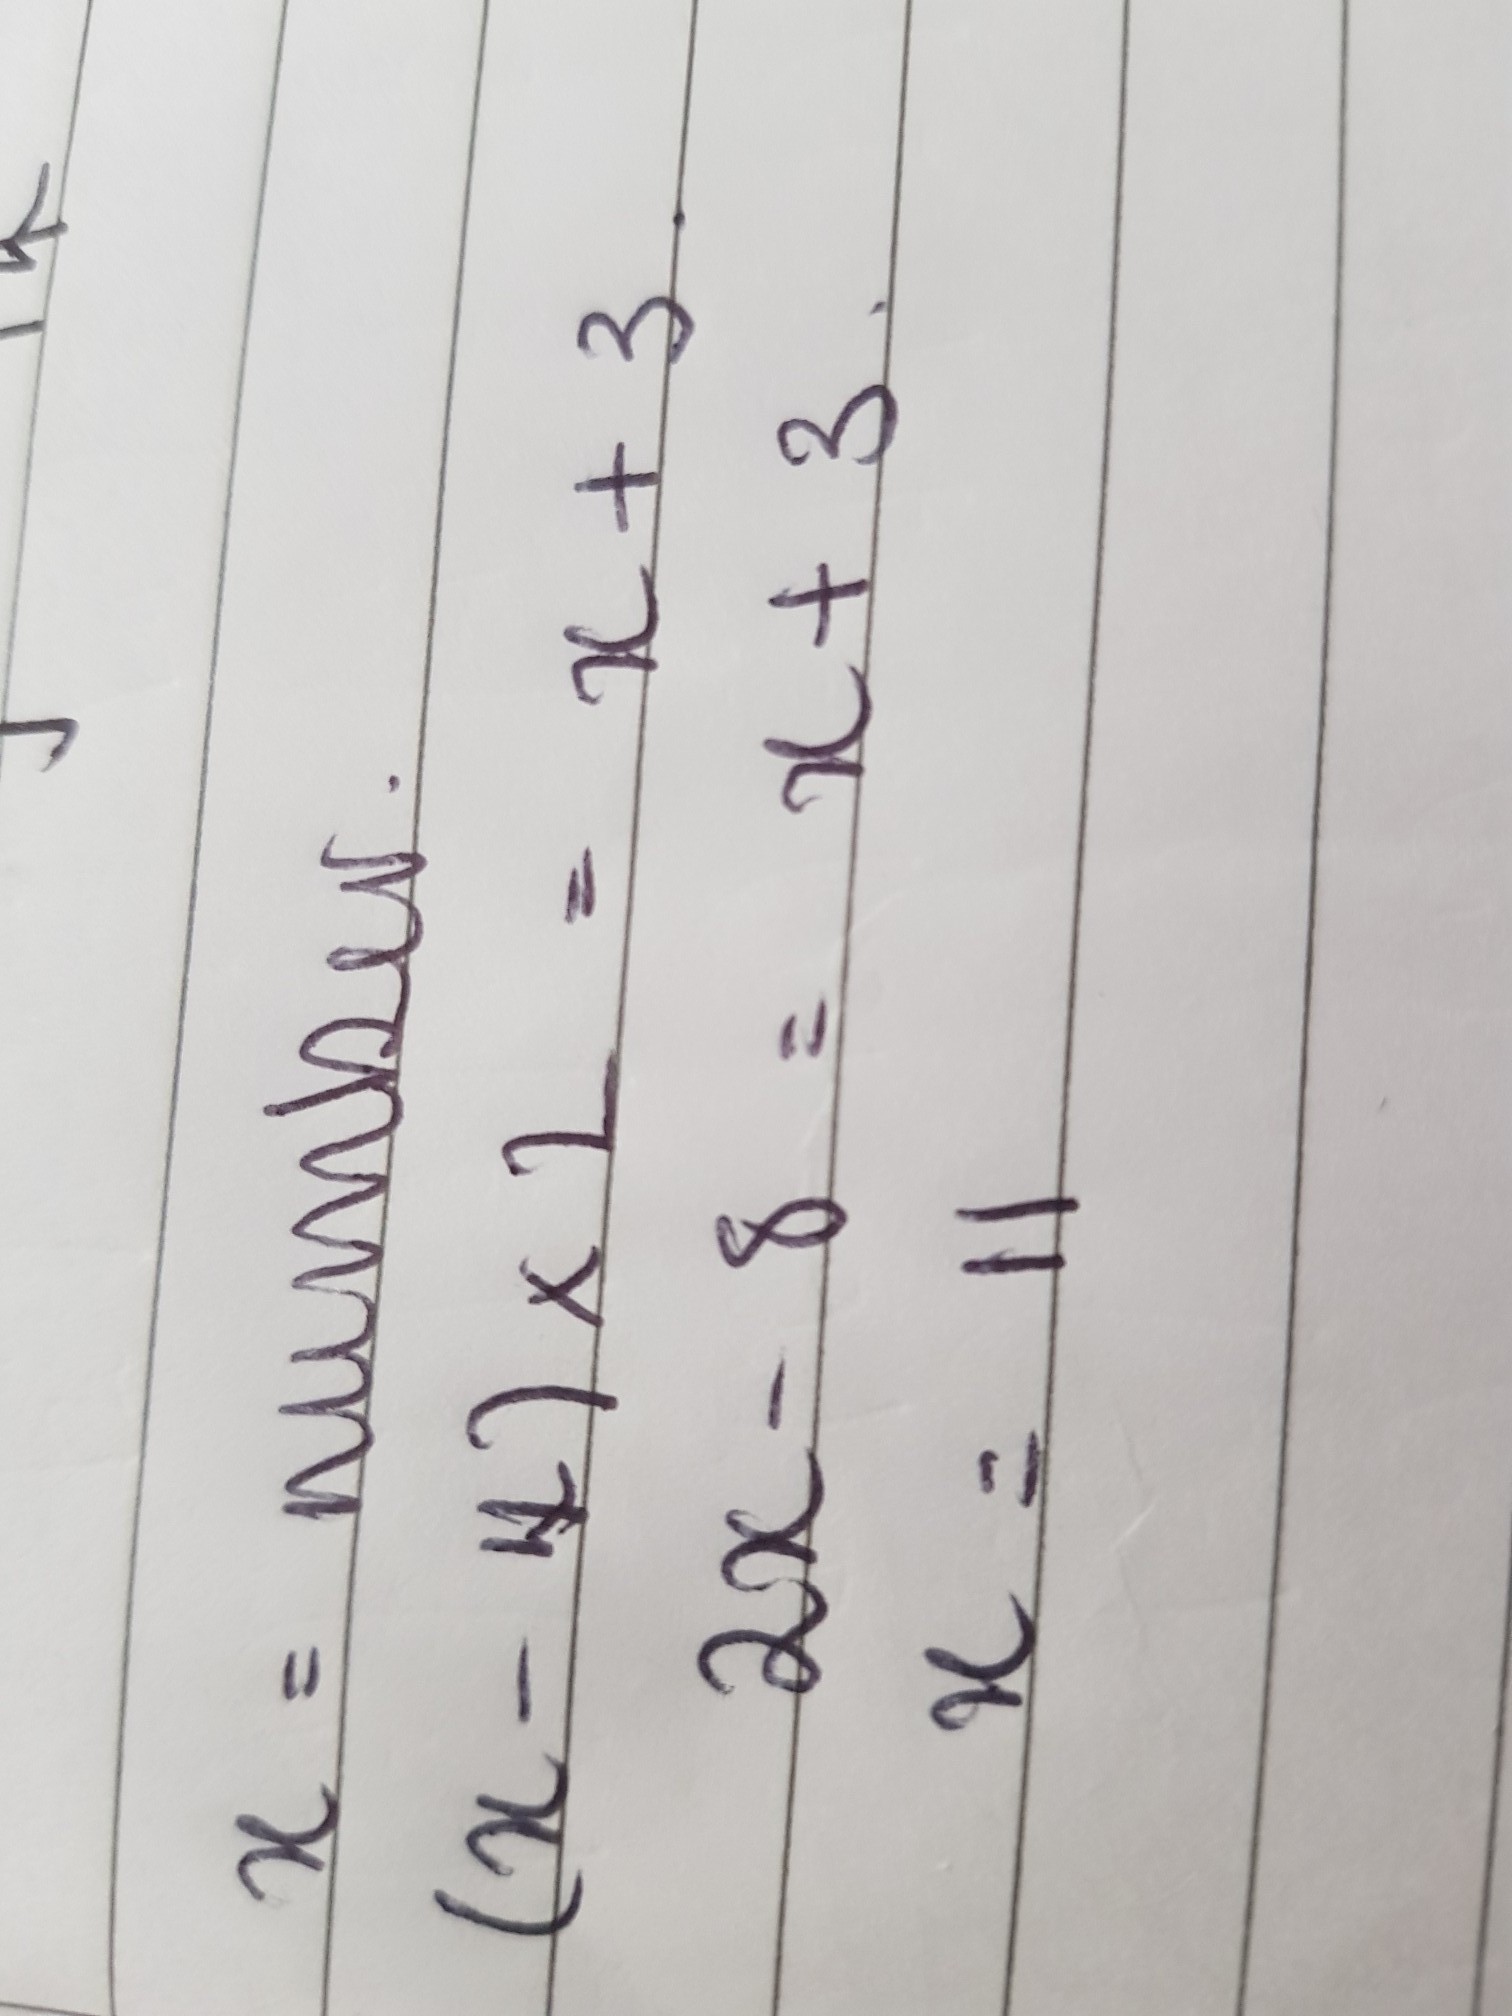 x = number.
(x - 4) x 2 = x + 3.
2x - 8 = x + 3.
x = 11